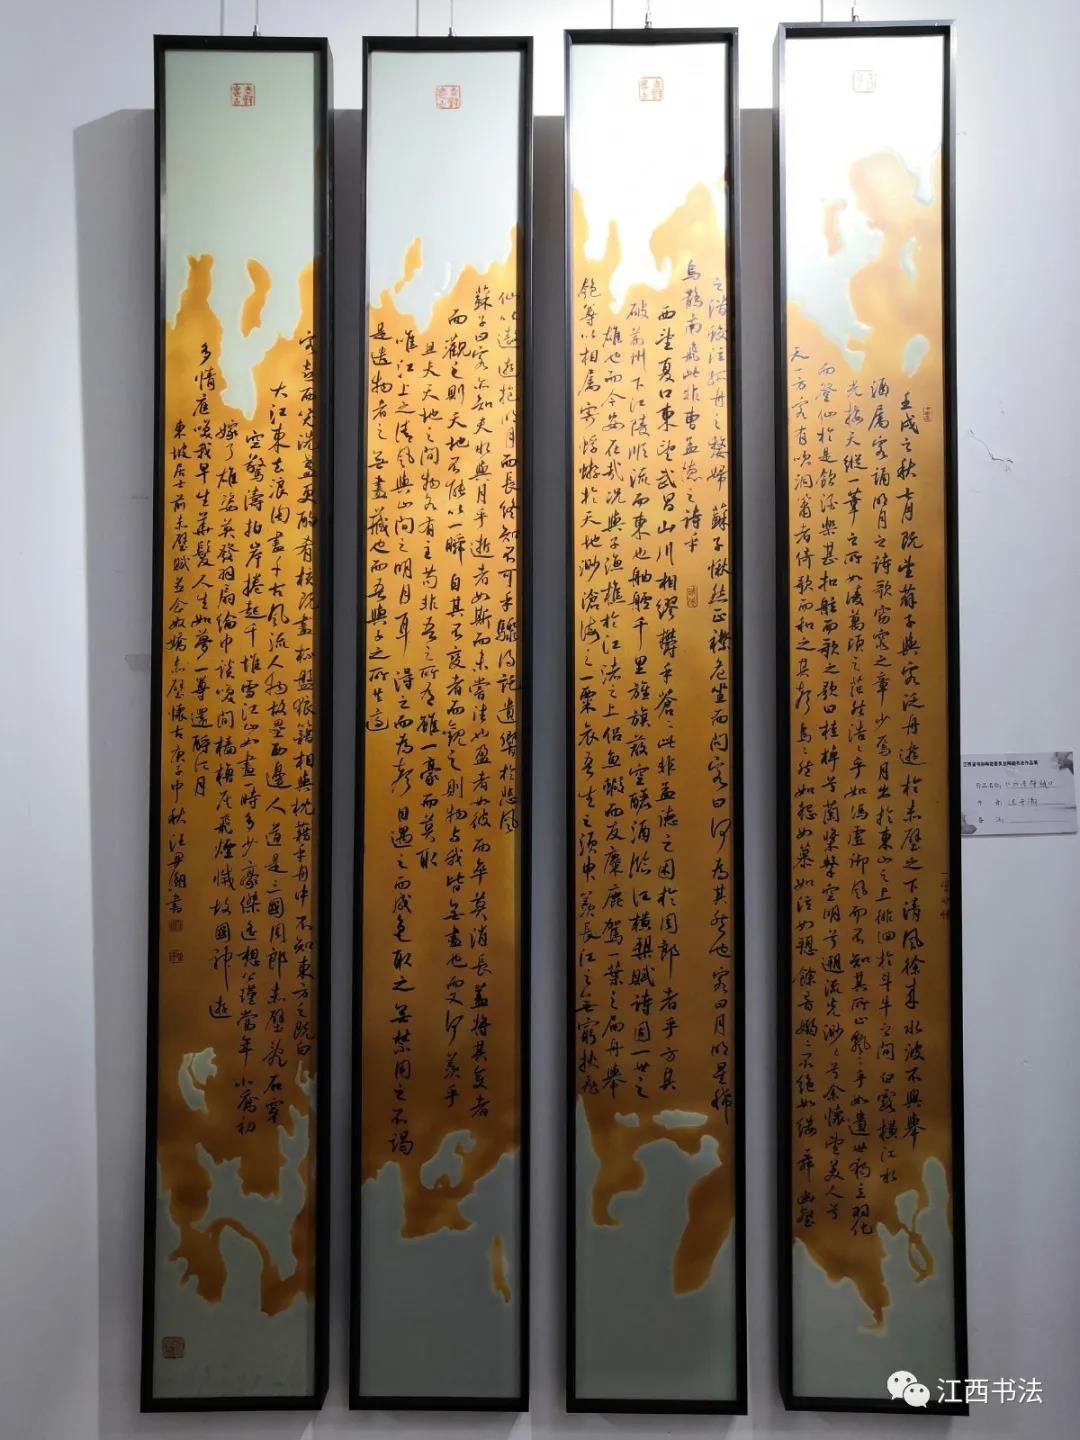 壬戌之秋七月既望蘇子與客泛舟遊於赤壁之下清風徐來水波不興舉
酒屬客誦明月之詩歌窈窕之章少焉月出於東山之上徘徊於斗牛之間白露橫江水
光接天縱一葦之所如凌萬頃之茫然浩浩乎如馮虛御風而不知其所止飄飄乎如遺世獨立羽化
而登仙於是飲酒樂甚扣舷而歌之歌曰桂棹兮蘭槳擊空明兮遡流光渺渺兮余懷望美人兮
天一方客有吹洞簫者倚歌而和之其聲烏烏然如怨如慕如泣如愬餘音嫋嫋不絕如縷舞幽壑
之潛蛟泣孤舟之嫠婦蘇子愀然正襟危坐而問客曰何為其然也客曰月明星稀
烏鵲南飛此非曹孟德之詩乎
西望夏口東望武昌山川相繆鬱乎蒼蒼此非孟德之困於周郎者乎方其
破荊州下江陵順流而東也舳艫千里旌旗蔽空釃酒臨江橫槊賦詩固一世之
雄也而今安在哉況與子漁樵於江渚之上侶魚蝦而友麋鹿駕一葉之扁舟舉
匏尊以相屬寄蜉蝣於天地渺滄海之一粟哀吾生之須臾羨長江之無窮挾飛
仙以遨遊抱明月而長終知不可乎驟得託遺響於悲風
蘇子曰客亦知夫水與月乎逝者如斯而未嘗往也盈者如彼而卒莫消長蓋將其變者
而觀之則天地不能以一瞬自其不變者而觀之則物與我皆無盡也而又何羨乎
且夫天地之間物各有主苟非吾之所有雖一豪而莫取
唯江上之清風與山間之明月耳得之而為聲目遇之而成色取之無禁用之不竭
是造物者之無盡藏也而吾與子之所共適
客喜而笑洗盞更酌肴核既盡杯盤狼籍相與枕藉乎舟中不知東方之既白
大江東去浪淘盡千古風流人物故壘西邊人道是三國周郎赤壁亂石穿
空驚濤拍岸捲起千堆雪江山如畫一時多少豪傑遙想公瑾當年小喬初
嫁了雄姿英發羽扇綸巾談笑間檣櫓灰飛煙滅故國神遊
多情應笑我早生華髮人生如夢一尊還酹江月
東坡居士前赤壁賦並念奴嬌赤壁懷古庚子中秋汪書
作品名称
作者
江西书法